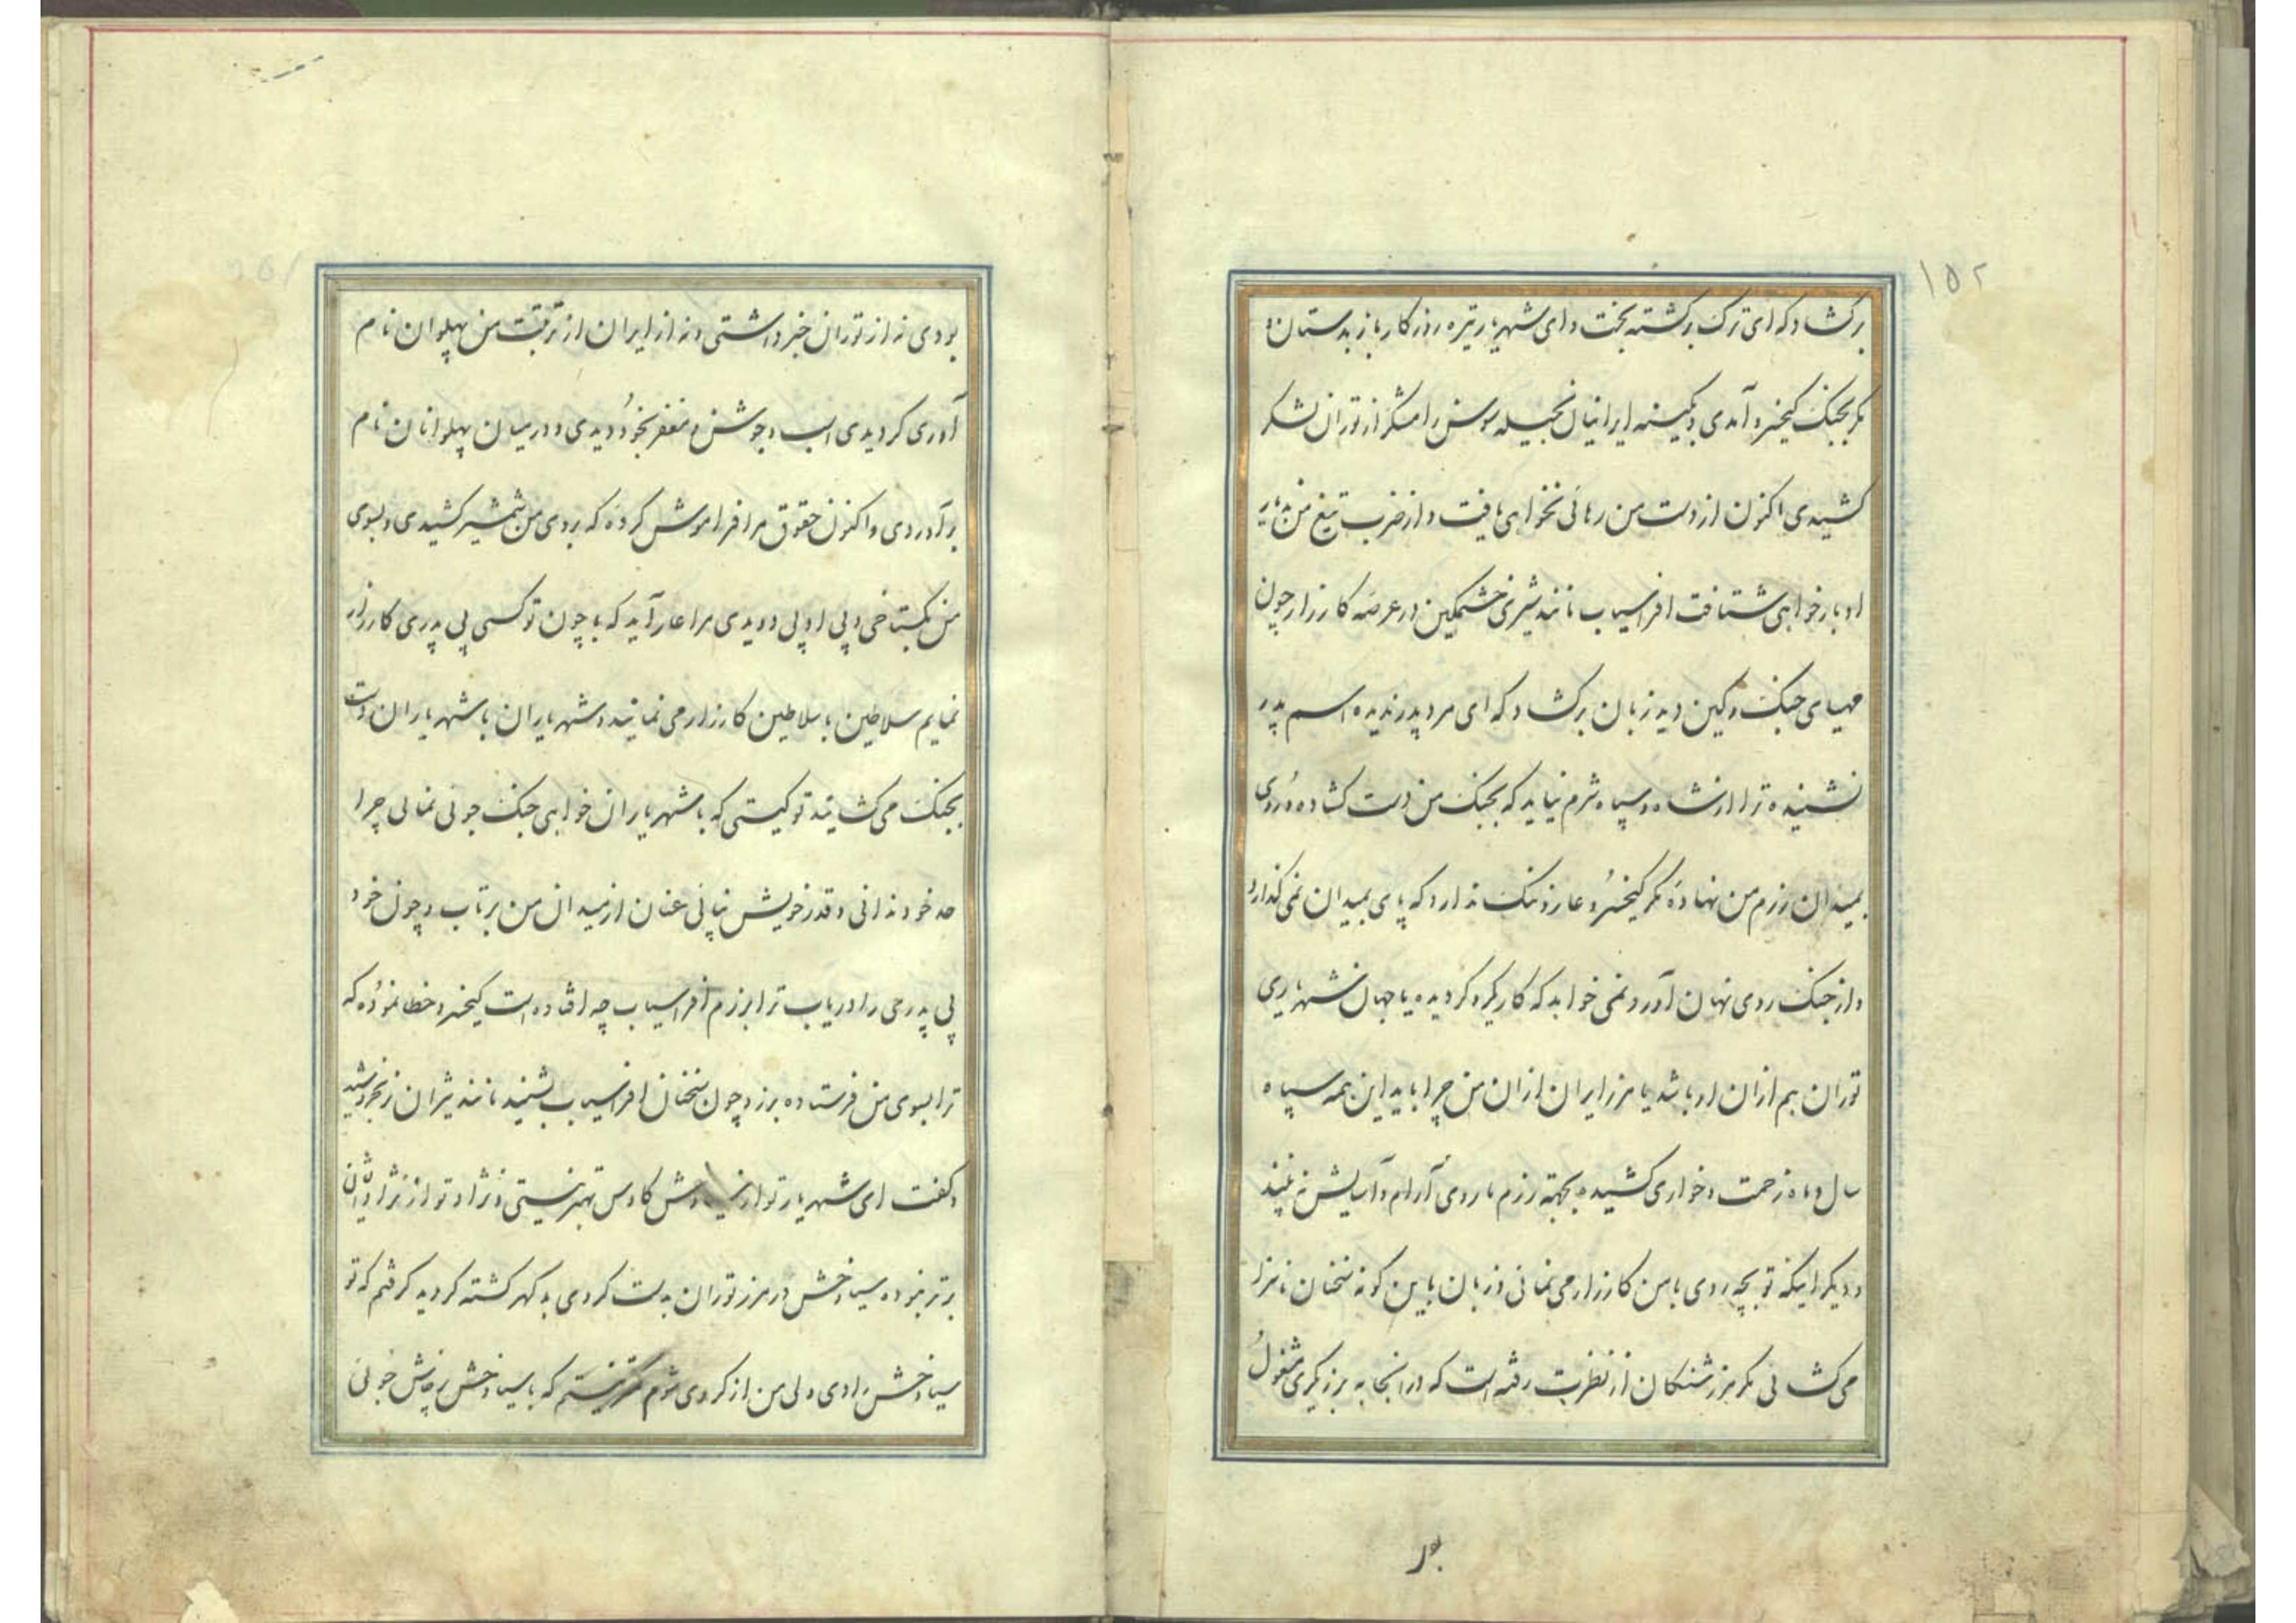 ۱۵۲
برکشاد که ای ترک برکشته بخت و ای شهریار تیره روزکار باز بدستان و
مکر بجنک کیخسرو آمدی و بکینه ایرانیان بحیله سوسن رامشکر از توران لشکر
کشیدی اکنون از دست من رهائی نخواهی یافت و از ضرب تیغ من بدیار
ادبار خواهی شتافت افراسیاب مانند شیری خشمکین در عرصه کارزار چون
مهیای جنک و کین دید زبان برکشاد که ای مرد پدر ندیده و اسم پدر
نشنیده ترا از شاه و سپاه شرم نیاید که بجنک من دست کشاده و روی
بمیدان رزم من نهاده مکر کیخسرو عار و ننک ندارد که پای بمیدان نمی کذارد
و از جنک روی نهان آورد نمی خواهد که کار یکرو کردیده یا جهان شهریاری
توران هم ازان او باشد یا مرز ایران ازان من چرا باید این همه سپاه
سال و ماه زحمت و خواری کشیده بجهته رزم ما روی آرام و آسایش نه بینند
و دیکر اینکه تو بچه روی با من کارزار می نمائی و زبان باین کونه سخنان ناسزا
می کشائی مکر مرز شنکان از نظرت رفته است که در انجا به برزیکری مشغول
بو
بودی نه از توران خبر داشتی و نه از ایران از تربیت من پهلوان نام
آوری کردیدی اسب و جوشن و مغفر بخود دیدی و در میان پهلوانان نام
برآوردی و اکنون حقوق مرا فراموش کرده که بروی من شمشیر کشیدی و بسوی
من بکستاخی و بی ادبی دویدی مرا عار آید که با چون تو کسی بی پدری کارزار
نمایم سلاطین با سلاطین کارزار می نمایند و شهریاران با شهریاران دست
بجنک می کشایند تو کیستی که با شهریاران خواهی جنک جوئی نمائی چرا
حد خود ندانی و قدر خویش نیابی عنان از میدان من برتاب و چون خود
بی پدری را دریاب ترا برزم افراسیاب چه افتاده است کیخسرو خطا نموده که
ترا بسوی من فرستاده برزو چون سخنان افراسیاب بشنید مانند شیران نر بخروشید
و کفت ای شهریار تو از سیاوش کاوس بهتر نیستی و نژاد تو از نژاد ایشان
برتر نبوده سیاوخش در مرز توران بدست کروی بدکهر کشته کردید کرفتم که تو
سیاوخش رادی ولی من از کروی شوم کمتر نیستم که با سیاوخش پرخاش جوئی